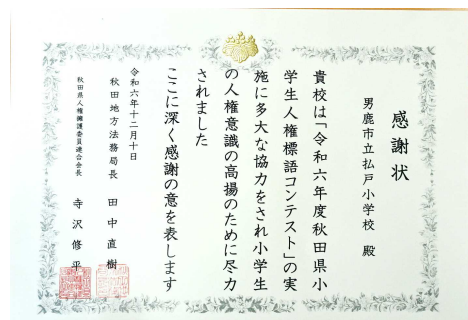 感謝状
男鹿市立払戸小学校 殿
貴校は「令和六年度秋田県小
学生人権標語コンテスト」の実
施に多大な協力をされ小学生
の人権意識の高揚のために尽力
されました
ここに深く感謝の意を表します
令和六年十二月十日
秋田地方法務局長 田中直樹
秋田県人権擁護委員連合会長 寺沢修平